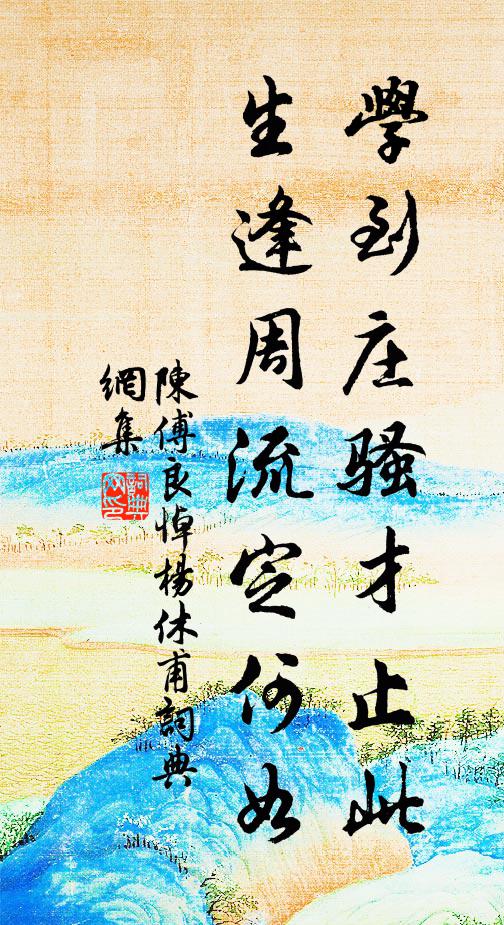 學到庄騷才止此
生逢周流定何如
陳傅良悼楊休甫詞典
網集